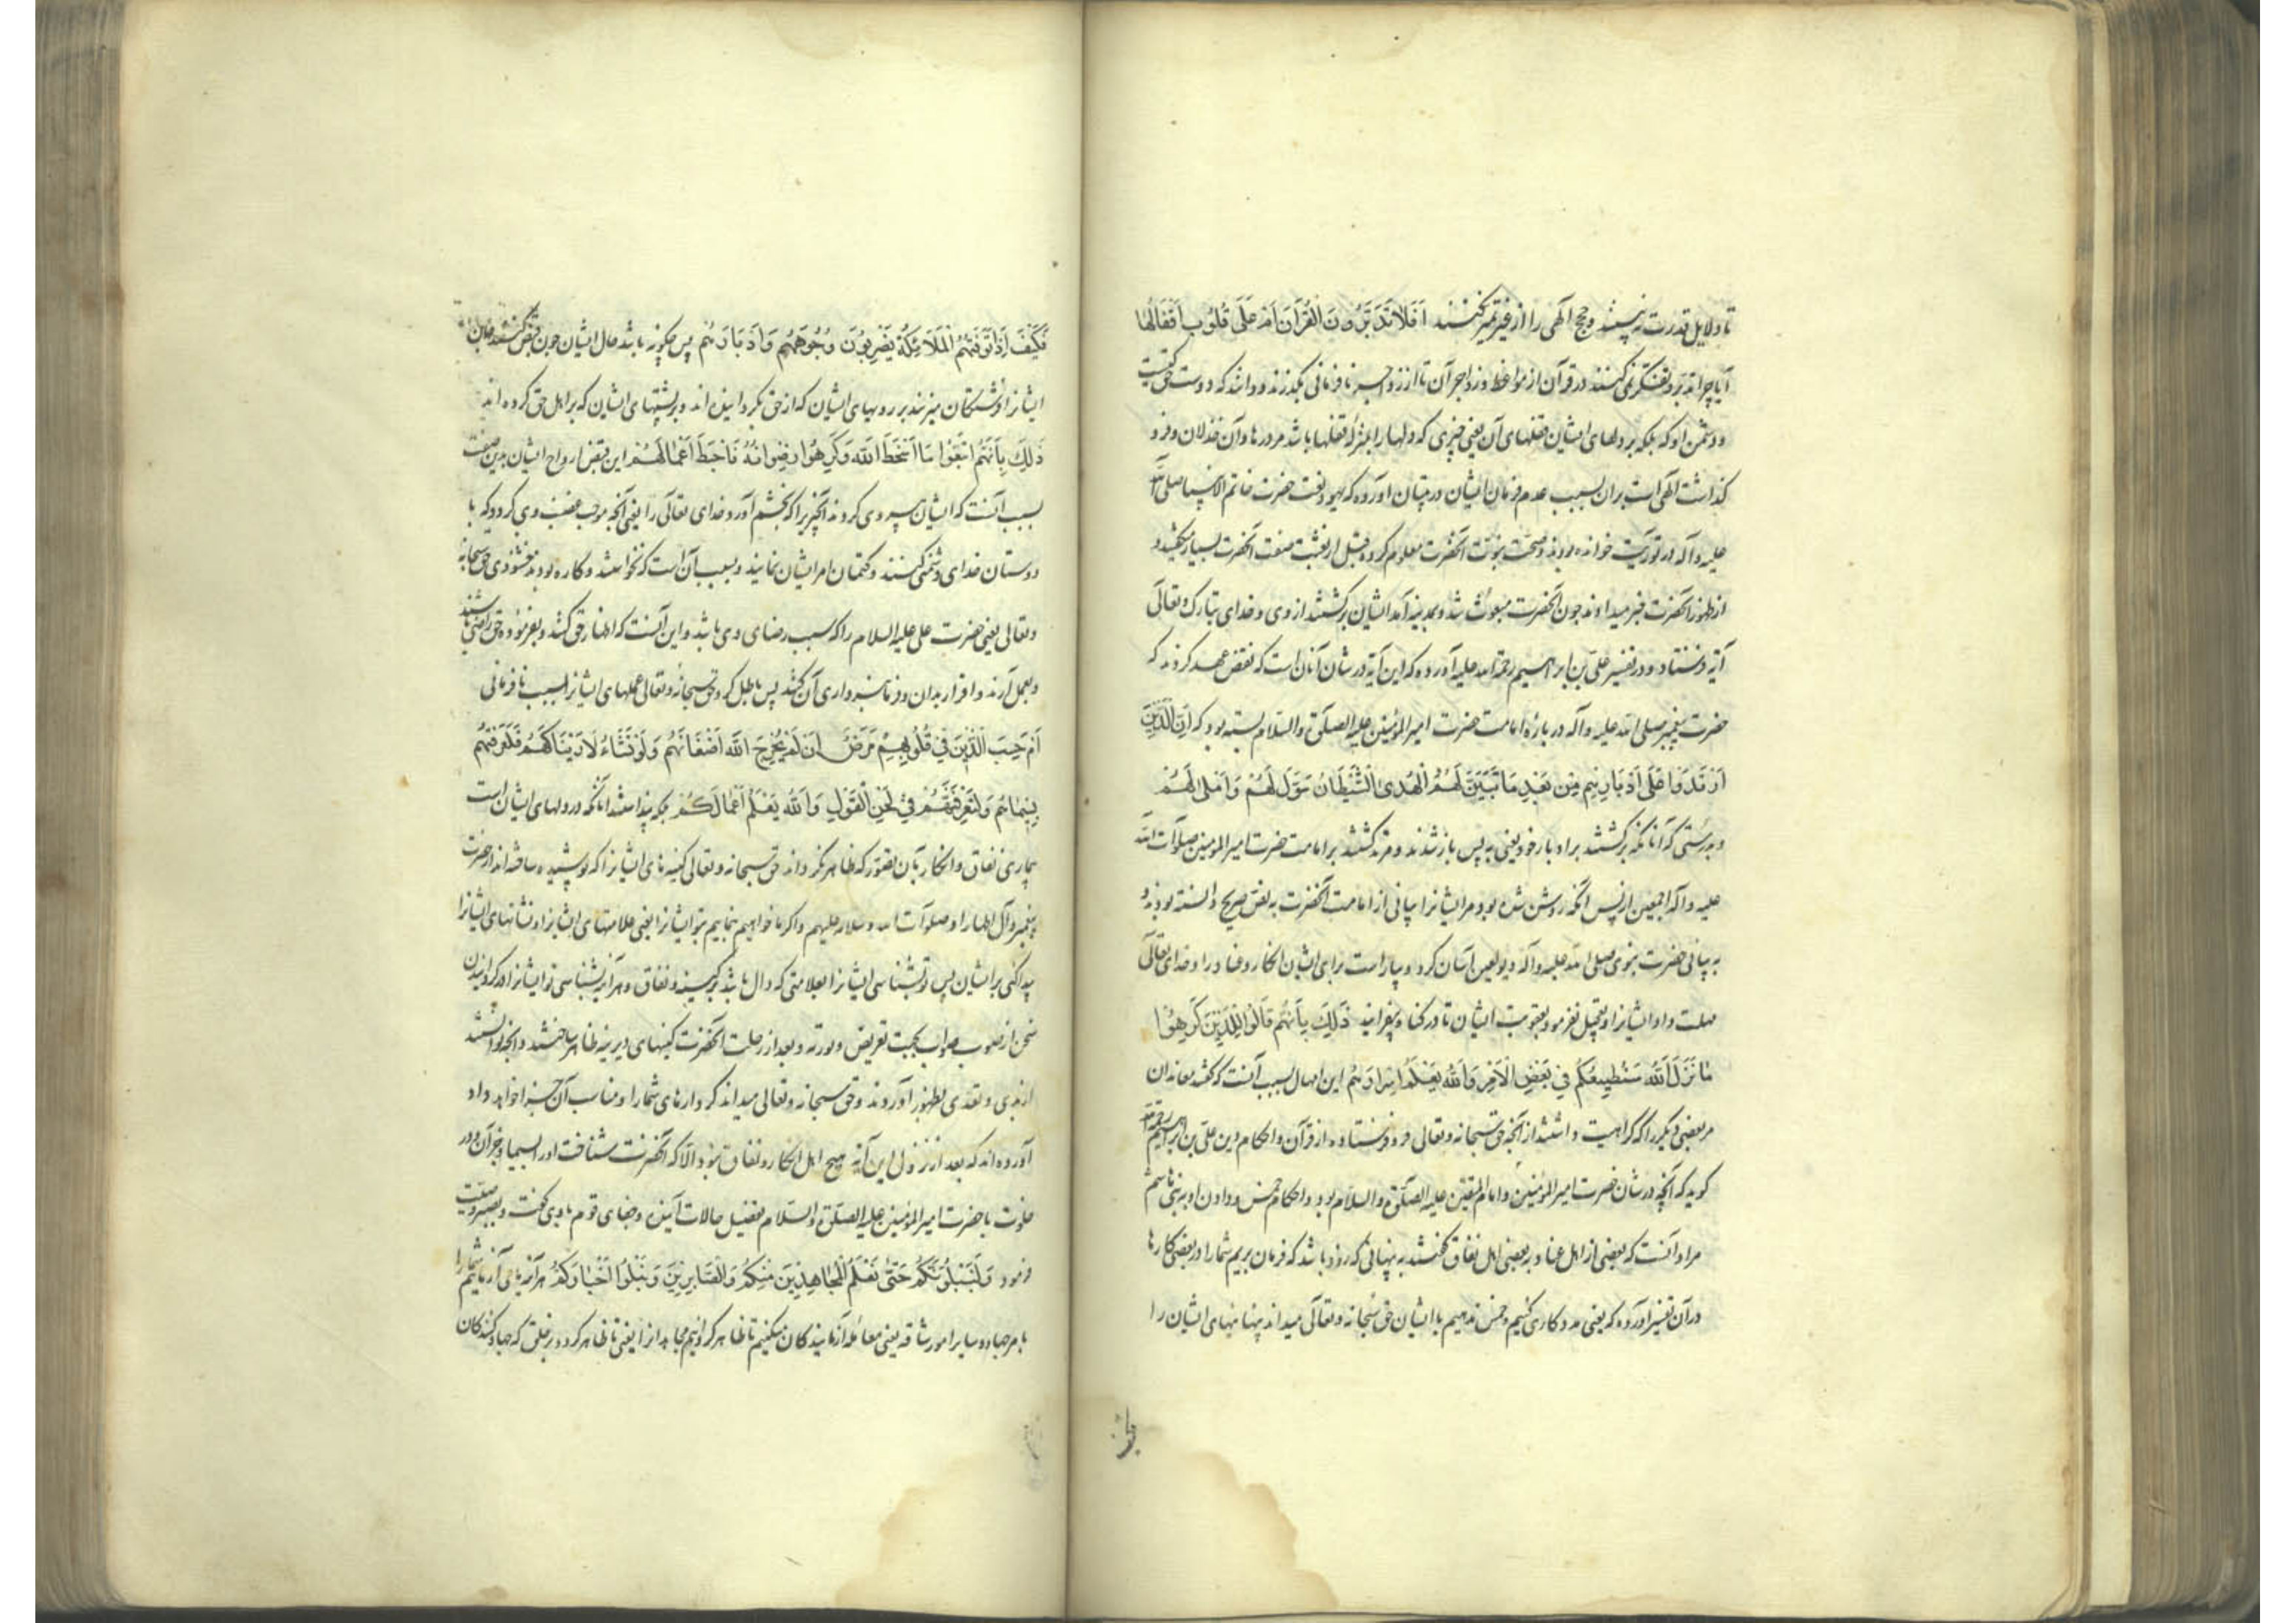 تا دلایل قدرت نه بینند و حجج الهی را از غیر تمیز نکنند اَفَلا تَدَبَّرُونَ القُرْآنَ اَمْ عَلَی قُلُوبٍ اَقْفَالُهَا
آیا چرا تدبر و تفکر نمی کنند در قرآن از مواعظ و زواجر آن تا از نافرمانی بگذرند و دانند که دوست حق کیست
و دشمن او که بلکه بر دلهای ایشان قفلهای آن یعنی چیزی که دلها را بمنزلهٔ قفلها باشد مر درها و آن خذلان و فرو
گذاشت الهی است بر آن بسبب عدم فرمان ایشان در تبیان آورده که یهود نعت حضرت خاتم الانبیا صلی الله
علیه و آله در توریت خوانده بودند و صحت نبوت آنحضرت معلوم کرده و قبل از بعثت صفت آنحضرت بسیار میکشیدند و
از ظهور آنحضرت خبر میدادند چون آنحضرت مبعوث شد و بمدینه آمد ایشان برگشتند از وی و خدای تبارک و تعالی
آیه فرستاد و در تفسیر علی بن ابراهیم رحمة الله علیه آورده که این آیه در شان آنان است که نقض عهد کردند که
حضرت پیغمبر صلی الله علیه و آله در بارهٔ امامت حضرت امیر المؤمنین علیه الصلوة و السلام بسته بود که اِنَّ الَّذِینَ
ارْتَدُّوا عَلَی اَدْبَارِهِم مِن بَعْدِ مَا تَبَیَّنَ لَهُمُ الْهُدَی الشَّیْطَانُ سَوَّلَ لَهُمْ وَ اَمْلَی لَهُمْ
و بدرستی که آنانکه برگشتند بر ادبار خود یعنی به پس باز شدند و مرتد گشتند بر امامت حضرت امیر المؤمنین صلوات الله
علیه و آله اجمعین از پس آنکه روشن شده بود مر ایشانرا بیانی از امامت آنحضرت به نص صریح دانسته بودند و
به بیانی حضرت نبوی صلی الله علیه و آله دیو لعین آسان کرد و بیاراست برای ایشان انکار و عناد را و خدای تعالی
مهلت داد ایشانرا و تعجیل نفرمود بعقوبت ایشان تا در گناه بیفزایند ذَلِکَ بِاَنَّهُم قَالُوا لِلَّذِینَ کَرِهُوا
مَا نَزَّلَ اللهُ سَنُطِیعُکُمْ فِی بَعْضِ الْاَمْرِ وَ اللهُ یَعْلَمُ اِسْرَارَهُم این امهال بسبب آنست که گفتند معاندان
مر بعضی دیگر را که کراهیت داشتند از آنچه حق سبحانه و تعالی فرو فرستاده از قرآن و احکام دین علی بن ابراهیم رحمه الله
گوید که آنچه در شان حضرت امیر المؤمنین و امام المتقین علیه الصلوة و السلام بود و احکام خمس و دادن او به بنی هاشم
مراد آنست که بعضی از اهل عناد به بعضی اهل نفاق گفتند به پنهانی که زود باشد که فرمان بریم شما را در بعضی کارها
در آن تفسیر آورده که یعنی مدد کاری کنیم و خمس ندهیم با ایشان حق سبحانه و تعالی میداند پنهانیهای ایشان را
فَکَیْفَ اِذَا تَوَفَّتْهُمُ الْمَلَائِکَةُ یَضْرِبُونَ وُجُوهَهُمْ وَ اَدْبَارَهُمْ پس چگونه باشد حال ایشان چون قبض کنند جان
ایشانرا فرشتگان میزنند بر رویهای ایشان که از حق بگردانیده اند و بر پشتهای ایشان که بر اهل حق کرده اند
ذَلِکَ بِاَنَّهُمُ اتَّبَعُوا مَا اَسْخَطَ اللهَ وَ کَرِهُوا رِضْوَانَهُ فَاَحْبَطَ اَعْمَالَهُمْ این قبض ارواح ایشان بدین صفت
بسبب آنست که ایشان پیروی کردند آنچیز را که بخشم آورد خدای تعالی را یعنی آنچه موجب غضب وی گردد که با
دوستان خدای دشمنی کنند و کتمان امر ایشان نمایند و بسبب آن است که نخواستند و کاره بودند خشنودی حق سبحانه
و تعالی یعنی حضرت علی علیه السلام را که سبب رضای وی باشد و این آنست که اظهار حق کنند و بفرموده حق راضی باشند
و بعمل آرند و اقرار بدان و فرمانبرداری آن کنند پس باطل کرد حق سبحانه و تعالی عملهای ایشانرا بسبب نافرمانی
اَمْ حَسِبَ الَّذِینَ فِی قُلُوبِهِمْ مَرَضٌ اَن لَنْ یُخْرِجَ اللهُ اَضْغَانَهُمْ وَ لَوْ نَشَاءُ لَاَرَیْنَاکَهُمْ فَلَعَرَفْتَهُمْ
بِسِیمَاهُمْ وَ لَتَعْرِفَنَّهُمْ فِی لَحْنِ الْقَوْلِ وَ اللهُ یَعْلَمُ اَعْمَالَکُمْ بلکه پنداشتند آنانکه در دلهای ایشان است
بیماری نفاق و انکار بآن تصور که ظاهر نکرداند حق سبحانه و تعالی کینه های ایشانرا که پوشیده ساخته اند از حضرت
پیغمبر و آل اطهار او صلوات الله و سلامه علیهم و اگر ما خواهیم بنماییم بتو ایشانرا یعنی علامتهای ایشانرا و نشانهای ایشانرا
پیدا کنی بر ایشان پس تو بشناسی ایشانرا بعلامتی که دال باشد بر کینه و نفاق و هر آینه بشناسی تو ایشانرا در گردانیدن
سخن از صوب صواب بجهت تعریض و توریه و بعد از رحلت آنحضرت کینهای دیرینه ظاهر ساختند و آنچه توانستند
از بدی و تعدی بظهور آوردند و حق سبحانه و تعالی میداند کردارهای شما را و مناسب آن جزا خواهد داد
آورده اند که بعد از نزول این آیه هیچ اهل انکار و نفاق نبود الا که آنحضرت شناخت او را بسیما و جز آن و در
خلوت با حضرت امیر المؤمنین علیه الصلوة و السلام تفصیل حالات آینده و جفای قوم با وی گفت و بصبر وصیت
فرمود وَ لَنَبْلُوَنَّکُمْ حَتَّی نَعْلَمَ الْمُجَاهِدِینَ مِنْکُمْ وَ الصَّابِرِینَ وَ نَبْلُوَا اَخْبَارَکُمْ هر آینه می آزماییم شما را
بامر جهاد و سایر امور شاقه یعنی معامله آزمایندکان میکنیم تا ظاهر گردانیم مجاهدانرا یعنی تا ظاهر گردد بر خلق که جهاد کنندکان